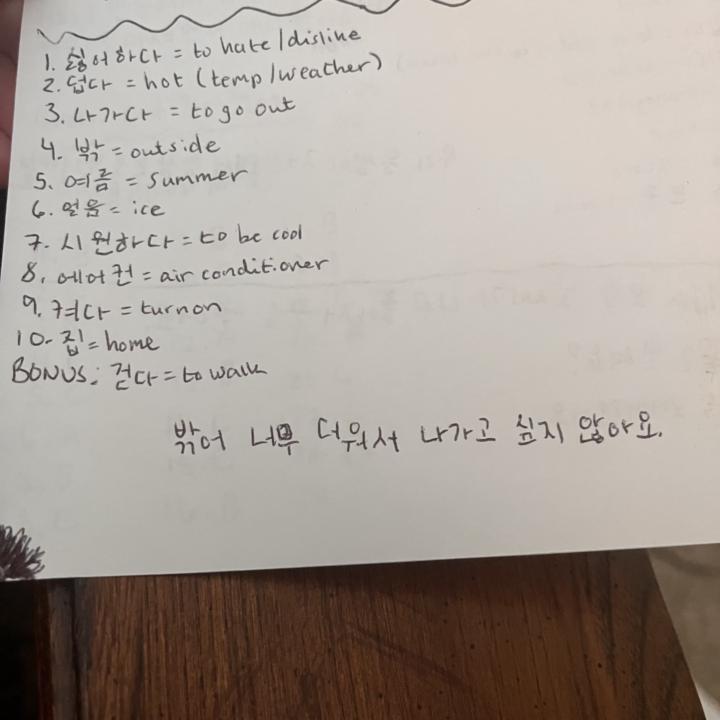 1. 싫어하다 = to hate/disline
2. 덥다 = hot (temp/weather)
3. 나가다 = to go out
4. 밖 = outside
5. 여름 = summer
6. 얼음 = ice
7. 시원하다 = to be cool
8. 에어컨 = air conditioner
9. 켜다 = turn on
10- 집 = home
BONUS: 걷다 = to walk
밖어 너무 더워서 나가고 싶지 않아요.